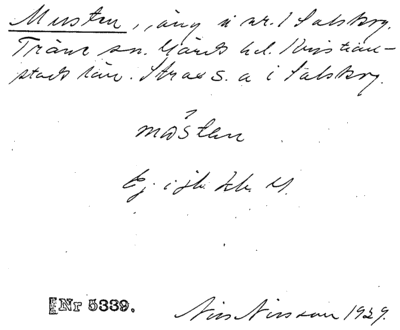 Musten, äng i nr. 1 Salskog.
Träne sn. Gärds hd. Kristian-
stads län. Strax s. ö i Salskog.
mòsten
Ej i jb. Lb. M.
Nr 5339. Nils Nilsson 1929.